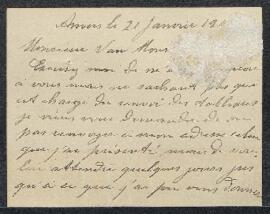 Anvers le 21 Janvier 19
Monsieur Van Mons
Excusez moi de ne
à vous mais ne sachant pas qui
est chargé du renvoi des tableaux
je vous demander de ne
pas renvoyer à mon adresse celui
que j'ai présenté mais de
attendre quelques jours jus
qu'à ce que j'ai pu vous donner